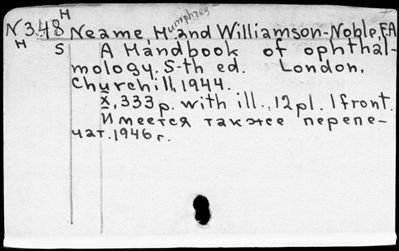 H
N 3.48 Neame, Humphrey and Williamson-Noble, F.A
H S A Handbook of ophthal-
mology. 5-th ed. London,
Churchill, 1944.
x, 333 p. with ill., 12 pl. 1 front.
Имеется также перепе-
чат. 1946 г.